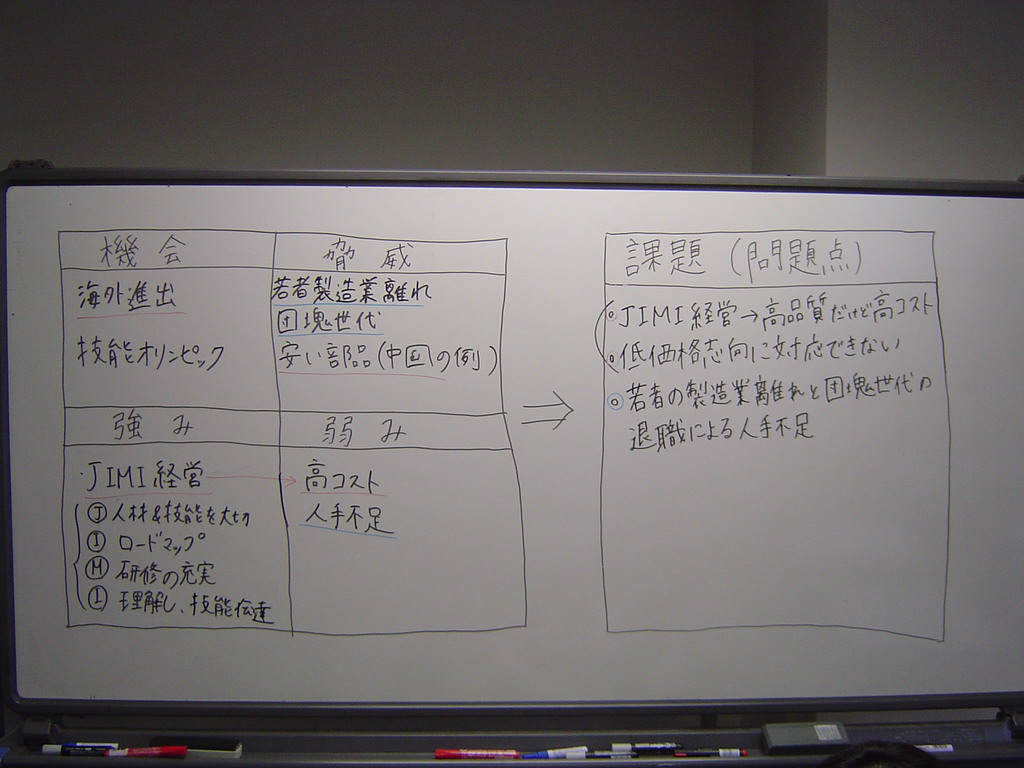 機会
脅威
海外進出
技能オリンピック
若者製造業離れ
団塊世代
安い部品(中国の例)
強み
弱み
・JIMI経営
Ⓙ 人材&技能を大切
Ⓘ ロードマップ
Ⓜ 研修の充実
Ⓘ 理解し、技能伝達
高コスト
人手不足
⇒
課題(問題点)
◎JIMI経営→高品質だけど高コスト
◎低価格志向に対応できない
◎若者の製造業離れと団塊世代の
退職による人手不足